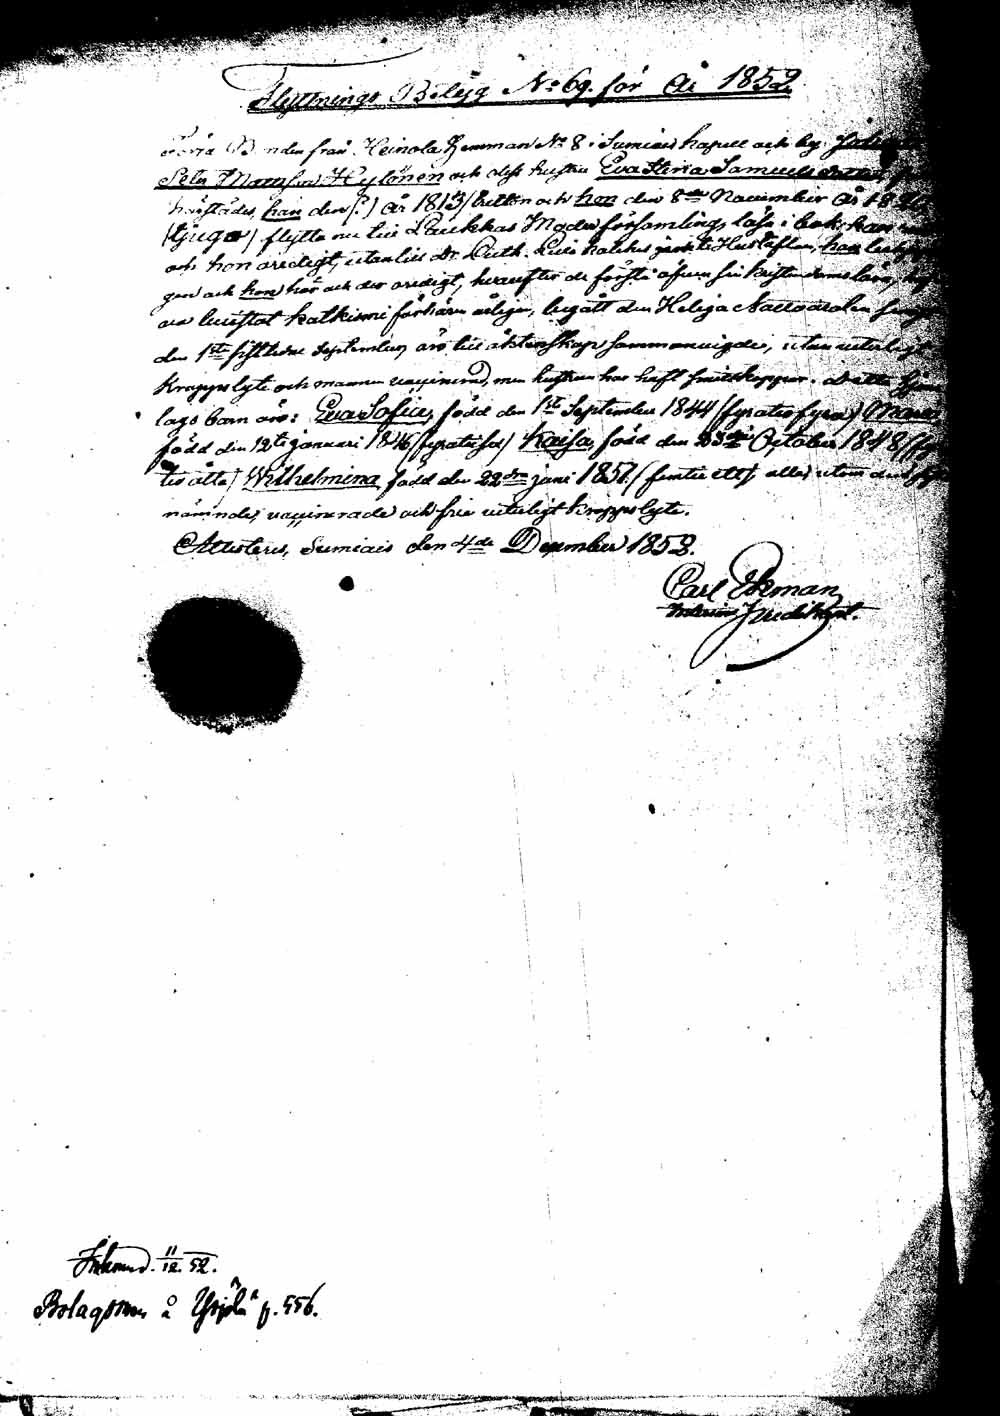 Flyttnings Betyg No 69. för År 1852.
Förra Bonden från Heinola Hemman No 8 i Sumiais kapell och by,
Matsson Hylönen och dess hustru Eva Stina Samuelsdotter
härstädes, han den (?) År 1813 / tretton och hon den 8de November År
/ tjugo / flytta nu till Laukkas Moder församling, läsa i bok, han
och hon oredigt, utanlill Dr. Luth. Lilla katekes jemte Hustaflan, han
gen och hon här och der oredigt, hvarefter de förstå äfven sin kristendomslära,
bevistat katkismi förhören årligen, begått den Heliga Nattvarden
den 1ste sistledne September, äro till äktenskap sammanvigde, utan
kroppslyte och mannen vaccinerad, men hustrun har haft smittkoppor. Detta
lags barn äro: Eva Sofia, född den 1ste September 1844 / fyratiofyra /
född den 12te januari 1846 / fyratiosex / Kaisa född den 23dje October 1848
tio åtta / Wilhelmina, född den 22dra juni 1851 / femtio ett / alla, utom den
nämnde, vaccinerade och fria utan kroppslyte.
Attesteras, Sumiais den 4de December 1852.
Carl Ekman
Predikant.
Inkommd. 11/12. 52.
Bolagsman å p. 556.